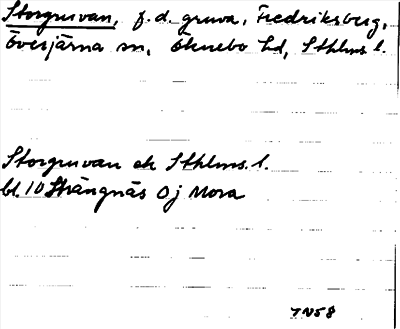 Storgruvan, f.d. gruva, Fredriksberg,
Överjärna sn, Öknebo hd, Sthlms l.
Storgruvan ek Sthlms l.
bl. 10 Strängnäs Oj Mora
7N58